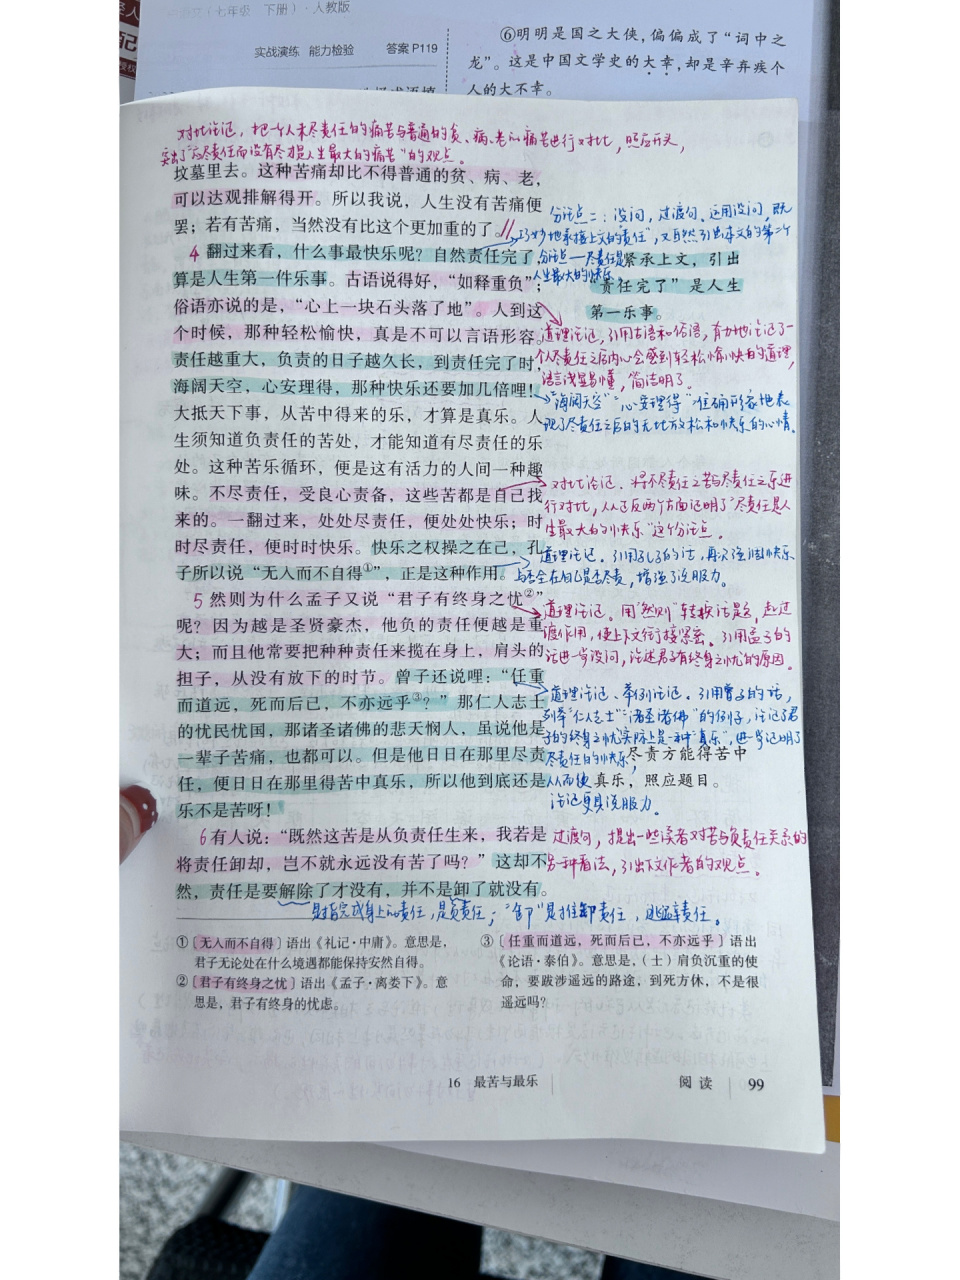 （七年级 下册）·人教版
实战演练 能力检验 答案P119
⑥明明是国之大侠，偏偏成了“词中之
龙”。这是中国文学史的大幸，却是辛弃疾个
人的大不幸。
对比论证，把一个人未尽责任的痛苦与普通的贫、病、老的痛苦进行对比，照应开头，
突出了“应尽责任而没有尽才是人生最大的痛苦”的观点。
坟墓里去。这种苦痛却比不得普通的贫、病、老，
可以达观排解得开。所以我说，人生没有苦痛便
罢；若有苦痛，当然没有比这个更加重的了。
分论点二：设问，过渡句、运用设问，既
巧妙地承接上文的“责任”，又自然引出本文的第二个
分论点——尽责任是
人生最大的快乐
4 翻过来看，什么事最快乐呢？自然责任完了，
算是人生第一件乐事。古语说得好，“如释重负”；
俗语亦说的是，“心上一块石头落了地”。人到这
个时候，那种轻松愉快，真是不可以言语形容。
责任越重大，负责的日子越久长，到责任完了时，
海阔天空，心安理得，那种快乐还要加几倍哩！
大抵天下事，从苦中得来的乐，才算是真乐。人
生须知道负责任的苦处，才能知道有尽责任的乐
处。这种苦乐循环，便是这有活力的人间一种趣
味。不尽责任，受良心责备，这些苦都是自己找
来的。一翻过来，处处尽责任，便处处快乐；时
时尽责任，便时时快乐。快乐之权操之在己，孔
子所以说“无人而不自得①”，正是这种作用。
紧承上文，引出
“责任完了”是人生
第一乐事。
道理论证，引用古语和俗语，有力地论证了一
个人尽责任之后内心会感到轻松愉快的道理，
语言浅显易懂，简洁明了。
“海阔天空”“心安理得”准确形象地表
现了尽责任之后的无比放松和快乐的心情。
对比论证。将不尽责任之苦与尽责任之乐进
行对比，从正反两个方面证明了“尽责任是人
生最大的快乐”这个分论点。
道理论证。引用孔子的话，再次强调快乐
与否全在自己是否尽责，增强了说服力。
5 然则为什么孟子又说“君子有终身之忧②”
呢？因为越是圣贤豪杰，他负的责任便越是重
大；而且他常要把种种责任来揽在身上，肩头的
担子，从没有放下的时节。曾子还说哩：“任重
而道远，死而后已，不亦远乎③？”那仁人志士
的忧民忧国，那诸圣诸佛的悲天悯人，虽说他是
一辈子苦痛，也都可以。但是他日日在那里尽责
任，便日日在那里得苦中真乐，所以他到底还是
乐不是苦呀！
道理论证。用“然则”转换话题，起过
渡作用，使上下文衔接紧密。引用孟子的
话进一步设问，论述君子有终身之忧的原因。
道理论证、举例论证。引用曾子的话，
列举“仁人志士”“诸圣诸佛”的例子，论证了君
子的终身之忧实际上是一种“真乐”，进一步证明了
尽责任的快乐，
从而使
论证更具说服力。
尽责方能得苦中
真乐，照应题目。
6 有人说：“既然这苦是从负责任生来，我若是
将责任卸却，岂不就永远没有苦了吗？”这却不
然，责任是要解除了才没有，并不是卸了就没有。
过渡句，提出一些读者对苦与负责任关系的
另一种看法，引出下文作者的观点。
是指完成身上的责任，是负责任；“卸”是推卸责任，逃避责任。
①〔无人而不自得〕语出《礼记·中庸》。意思是，
君子无论处在什么境遇都能保持安然自得。
②〔君子有终身之忧〕语出《孟子·离娄下》。意
思是，君子有终身的忧虑。
③〔任重而道远，死而后已，不亦远乎〕语出
《论语·泰伯》。意思是，（士）肩负沉重的使
命，要跋涉遥远的路途，到死方休，不是很
遥远吗？
16 最苦与最乐 阅读 99